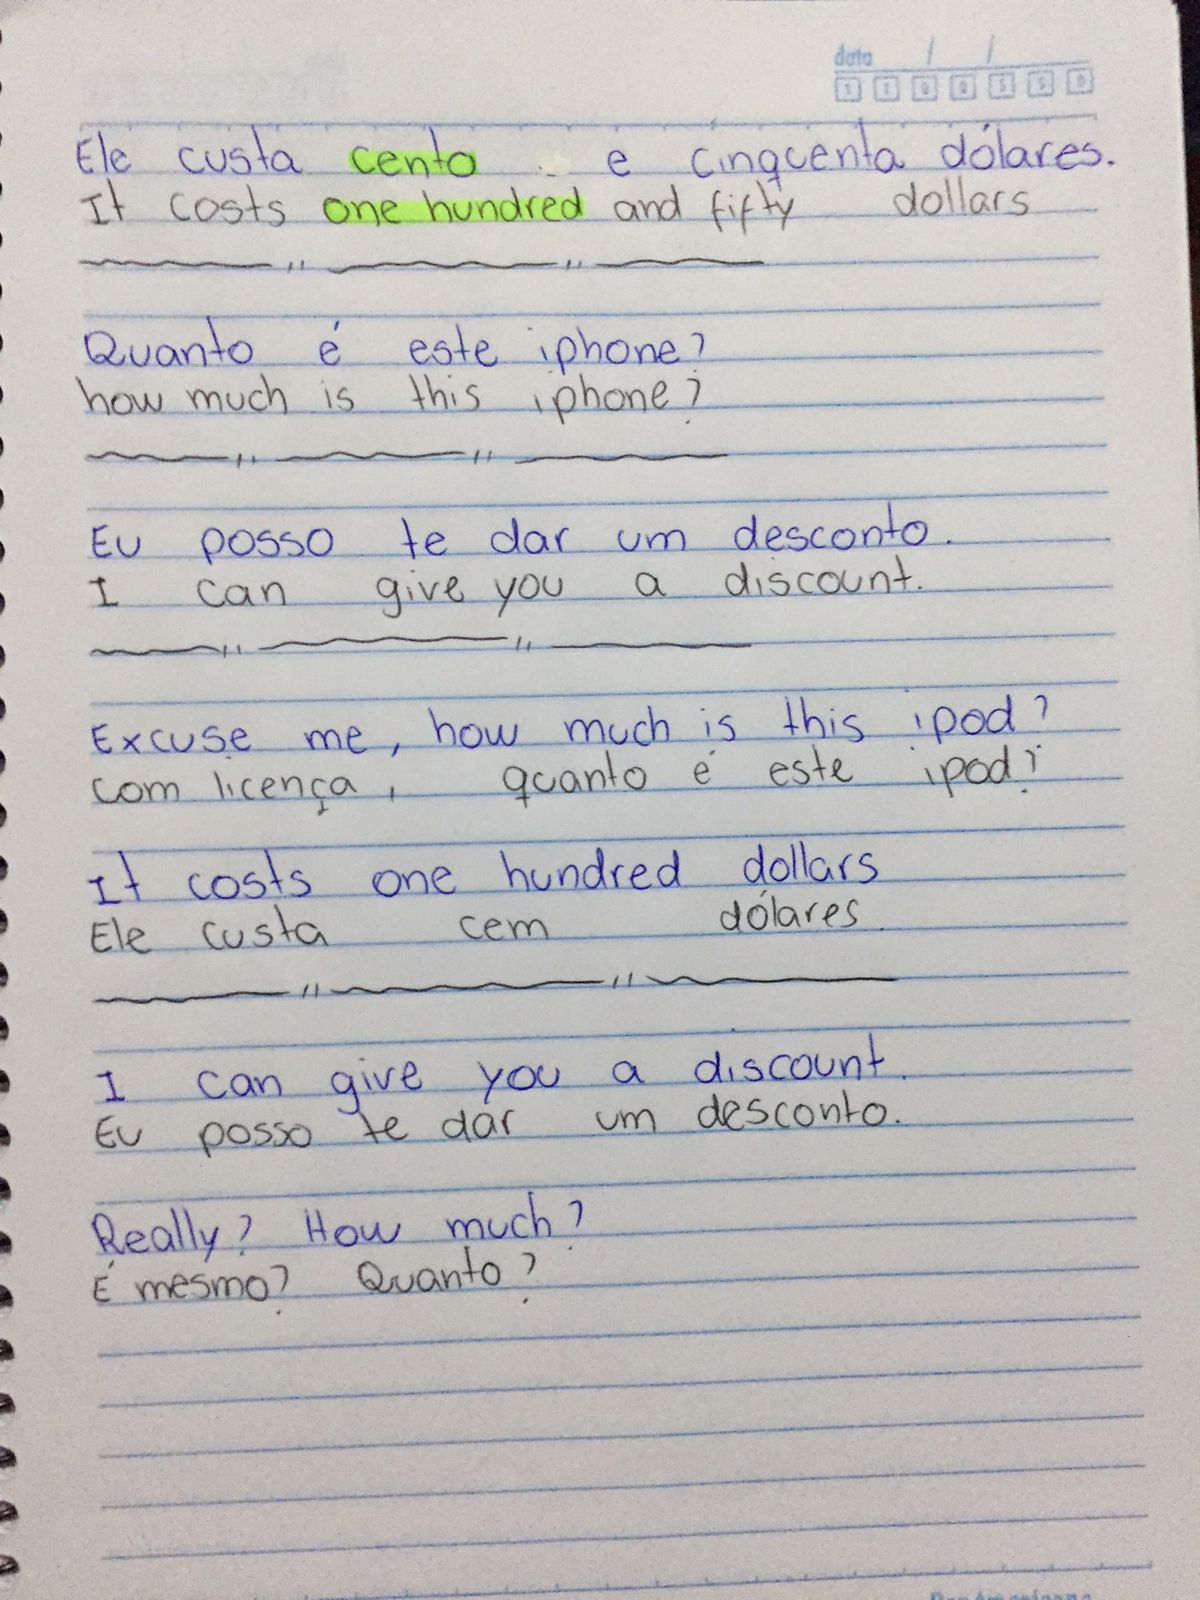 data / /
Ele custa cento e cinquenta dólares.
It costs one hundred and fifty dollars
Quanto é este iphone?
how much is this iphone?
Eu posso te dar um desconto.
I can give you a discount.
Excuse me, how much is this ipod?
com licença, quanto é este ipod?
It costs one hundred dollars
Ele custa cem dólares.
I can give you a discount.
Eu posso te dar um desconto.
Really? How much?
É mesmo? Quanto?